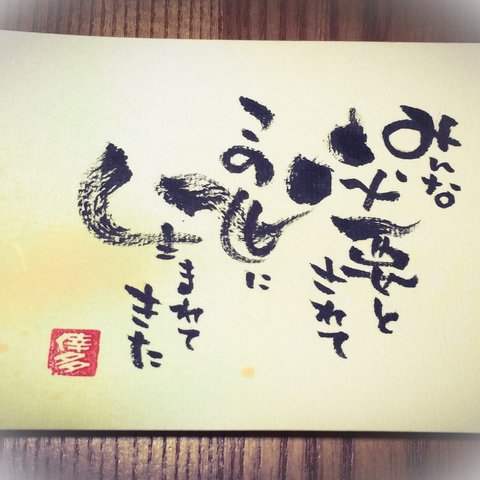 みんな
必要と
されて
この世に
生まれて
きた
倖多